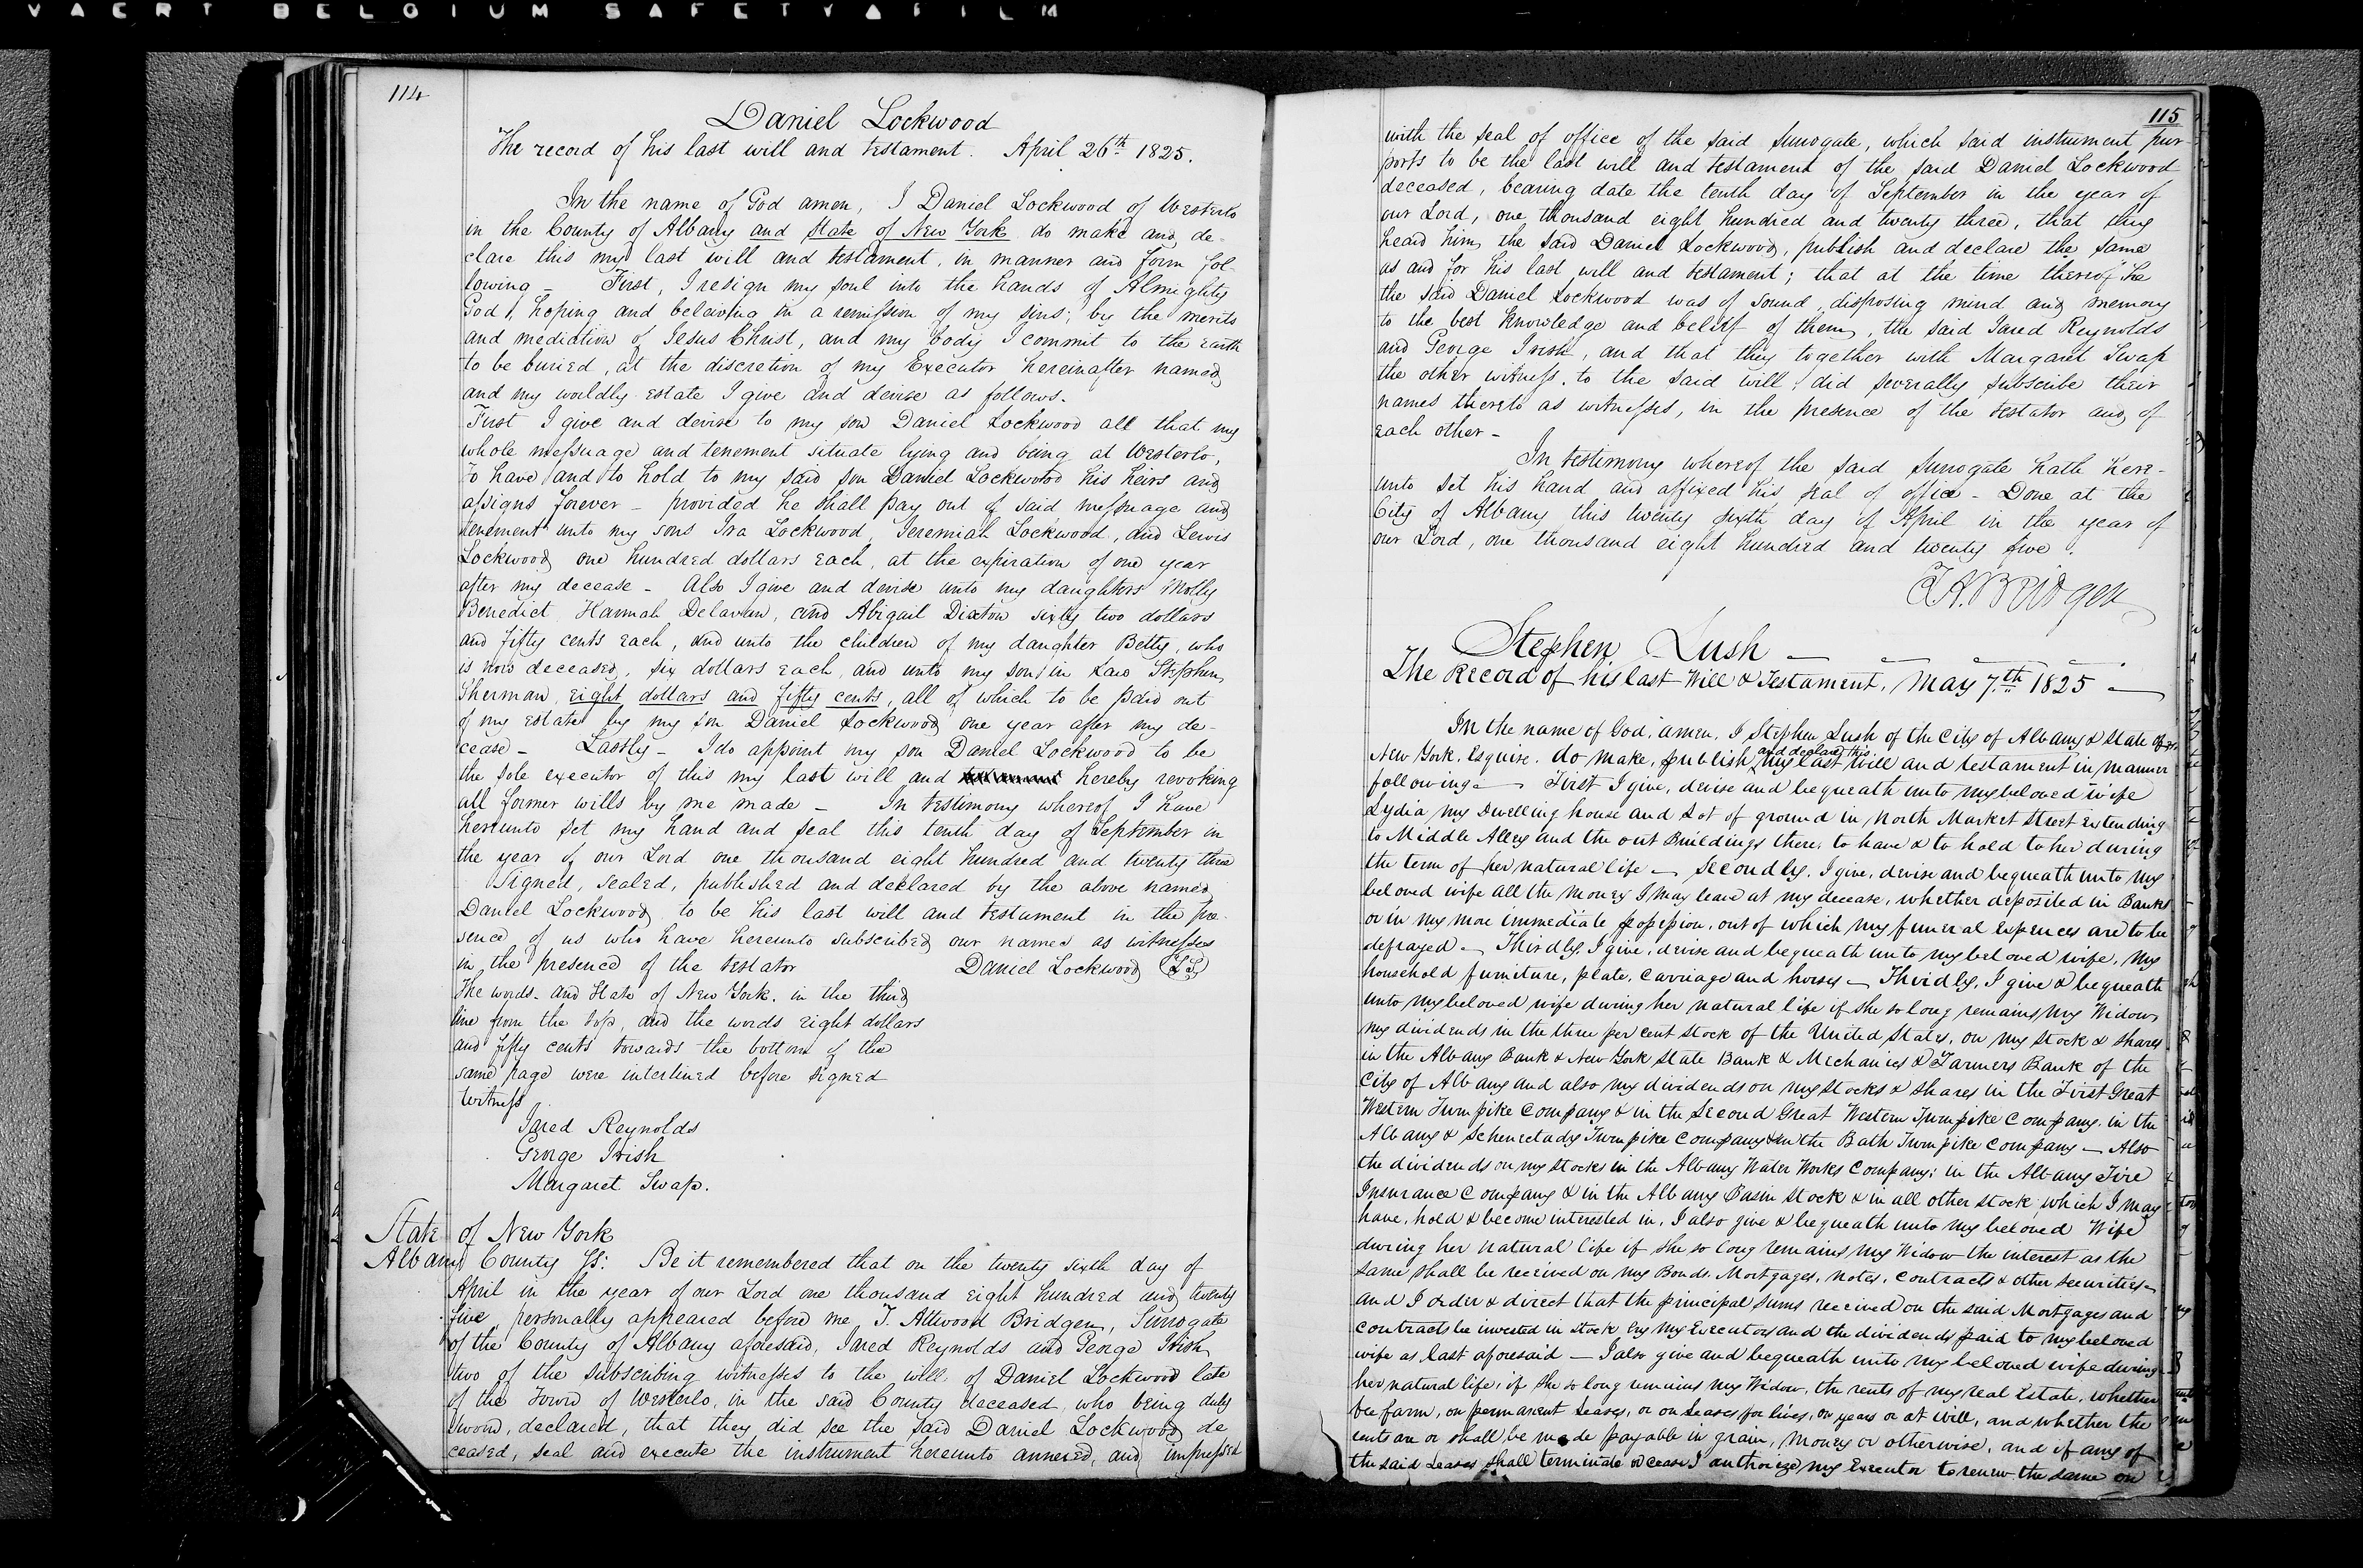 VAERT BELGIUM SAFETY FILM
114
Daniel Lockwood
The record of his last will and testament. April 26th 1825.
In the name of God amen, I Daniel Lockwood of Westerlo
in the County of Albany and State of New York do make and de-
clare this my last will and testament, in manner and form fol-
lowing - First, I resign my soul into the hands of Almighty
God, hoping and beleiving in a remission of my sins, by the merits
and mediation of Jesus Christ, and my body I commit to the earth
to be buried, at the discretion of my Executor hereinafter named
and my worldly estate I give and devise as follows.
First I give and devise to my son Daniel Lockwood all that my
whole messuage and tenement situate lying and being at Westerlo,
To have and to hold to my said son Daniel Lockwood his heirs and
assigns forever - provided he shall pay out of said messuage and
tenement unto my sons Ira Lockwood, Jeremiah Lockwood, and Lewis
Lockwood one hundred dollars each, at the expiration of one year
after my decease - Also I give and devise unto my daughters Molly
Benedict Hannah Delavan, and Abigail Dixton sixty two dollars
and fifty cents each, and unto the children of my daughter Betty, who
is now deceased, six dollars each, and unto my son in law Stephen
Sherman, eight dollars and fifty cents, all of which to be paid out
of my estate by my son Daniel Lockwood one year after my de-
cease - Lastly - I do appoint my son Daniel Lockwood to be
the sole executor of this my last will and hereby revoking
all former wills by me made - In testimony whereof I have
hereunto set my hand and seal this tenth day of September in
the year of our Lord one thousand eight hundred and twenty three
Signed, sealed, published and declared by the above named
Daniel Lockwood to be his last will and testament in the pre-
sence of us who have hereunto subscribed our names as witnesses
in the presence of the testator Daniel Lockwood (LS)
The words - and State of New York. in the third
line from the top, and the words eight dollars
and fifty cents towards the bottom of the
same page were interlined before signed
Witness
Jared Reynolds
George Irish
Margaret Swap.
State of New York
Albany County Ss: Be it remembered that on the twenty sixth day of
April in the year of our Lord one thousand eight hundred and twenty
five personally appeared before me, T. Attwood Bridgen, Surrogate
of the County of Albany aforesaid, Jared Reynolds and George Irish
two of the subscribing witnesses to the will of Daniel Lockwood late
of the Town of Westerlo, in the said County deceased, who being duly
sworn, declared, that they did see the said Daniel Lockwood de
ceased, seal and execute the instrument hereunto annexed, and impressed
115
with the seal of office of the said Surrogate, which said instrument pur-
ports to be the last will and testament of the said Daniel Lockwood
deceased, bearing date the tenth day of September in the year of
our Lord, one thousand eight hundred and twenty three, that they
heard him the said Daniel Lockwood, publish and declare the same
as and for his last will and testament; that at the time thereof he
the said Daniel Lockwood was of sound disposing mind and memory
to the best knowledge and beleif of them, the said Jared Reynolds
and George Irish, and that they together with Margaret Swap
the other witness to the said will did severally subscribe their
names thereto as witnesses, in the presence of the testator and of
each other -
In testimony whereof the said Surrogate hath here-
unto set his hand and affixed his seal of office - Done at the
City of Albany this twenty sixth day of April in the year of
our Lord, one thousand eight hundred and twenty five.
T. A. Bridgen
Stephen Lush
The Record of his last Will & Testament. May 7th 1825
In the name of God, amen. I Stephen Lush of the City of Albany & State of
New York, Esquire. do make, publish and declare this my last will and testament in manner
following - First I give, devise and bequeath unto my beloved wife
Lydia my Dwelling house and Lot of ground in North Market Street extending
to Middle Alley and the out Buildings there, to have & to hold to her during
the term of her natural life - Secondly, I give, devise and bequeath unto my
beloved wife all the money I may leave at my decease, whether deposited in Banks
or in my more immediate possession, out of which my funeral expences are to be
defrayed - Thirdly. I give, devise and bequeath unto my beloved wife, my
household furniture, plate, carriage and horses - Thirdly, I give & bequeath
unto my beloved wife during her natural life if she so long remains my Widow
my dividends in the three per cent stock of the United States, on my stock & shares
in the Albany Bank & New York State Bank & Mechanics & Farmers Bank of the
City of Albany and also my dividends on my stocks & shares in the First Great
Western Turnpike Company & in the Second Great Western Turnpike Company, in the
Albany & Schenectady Turnpike Company & in the Bath Turnpike Company - Also
the dividends on my stocks in the Albany Water Works Company; in the Albany Fire
Insurance Company & in the Albany Basin stock & in all other stock which I may
have, hold & become interested in, I also give & bequeath unto my beloved Wife
during her natural life if she so long remains my Widow the interest as the
same shall be received on my Bonds, Mortgages, notes, contracts & other securities -
and I order & direct that the principal sums received on the said Mortgages and
contracts be invested in stock by my Executors and the dividends paid to my beloved
wife as last aforesaid - I also give and bequeath unto my beloved wife during
her natural life, if she so long remains my Widow, the rents of my real Estate, whether
fee farm, on permanent Leases, or on Leases for lives, or years or at will, and whether the
rents are or shall be made payable in grain, money or otherwise, and if any of
the said Leases shall terminate or cease I authorize my Executor to renew the same on